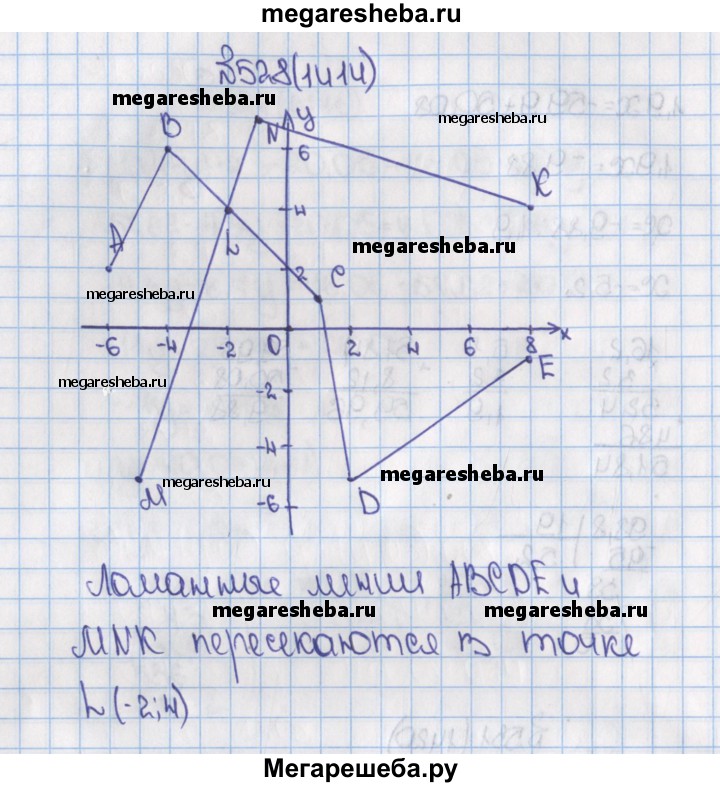 megaresheba.ru
№528(1414)
megaresheba.ru
megaresheba.ru
B N y
6
K
4
A L
megaresheba.ru
2 C
megaresheba.ru
-6 -4 -2 0 2 4 6 8 x
E
megaresheba.ru
-2
-4
M megaresheba.ru megaresheba.ru
-6 D
Ломанные линии ABCDE и
megaresheba.ru megaresheba.ru
MNK пересекаются в точке
L(-2;4)
Мегарешеба.ру